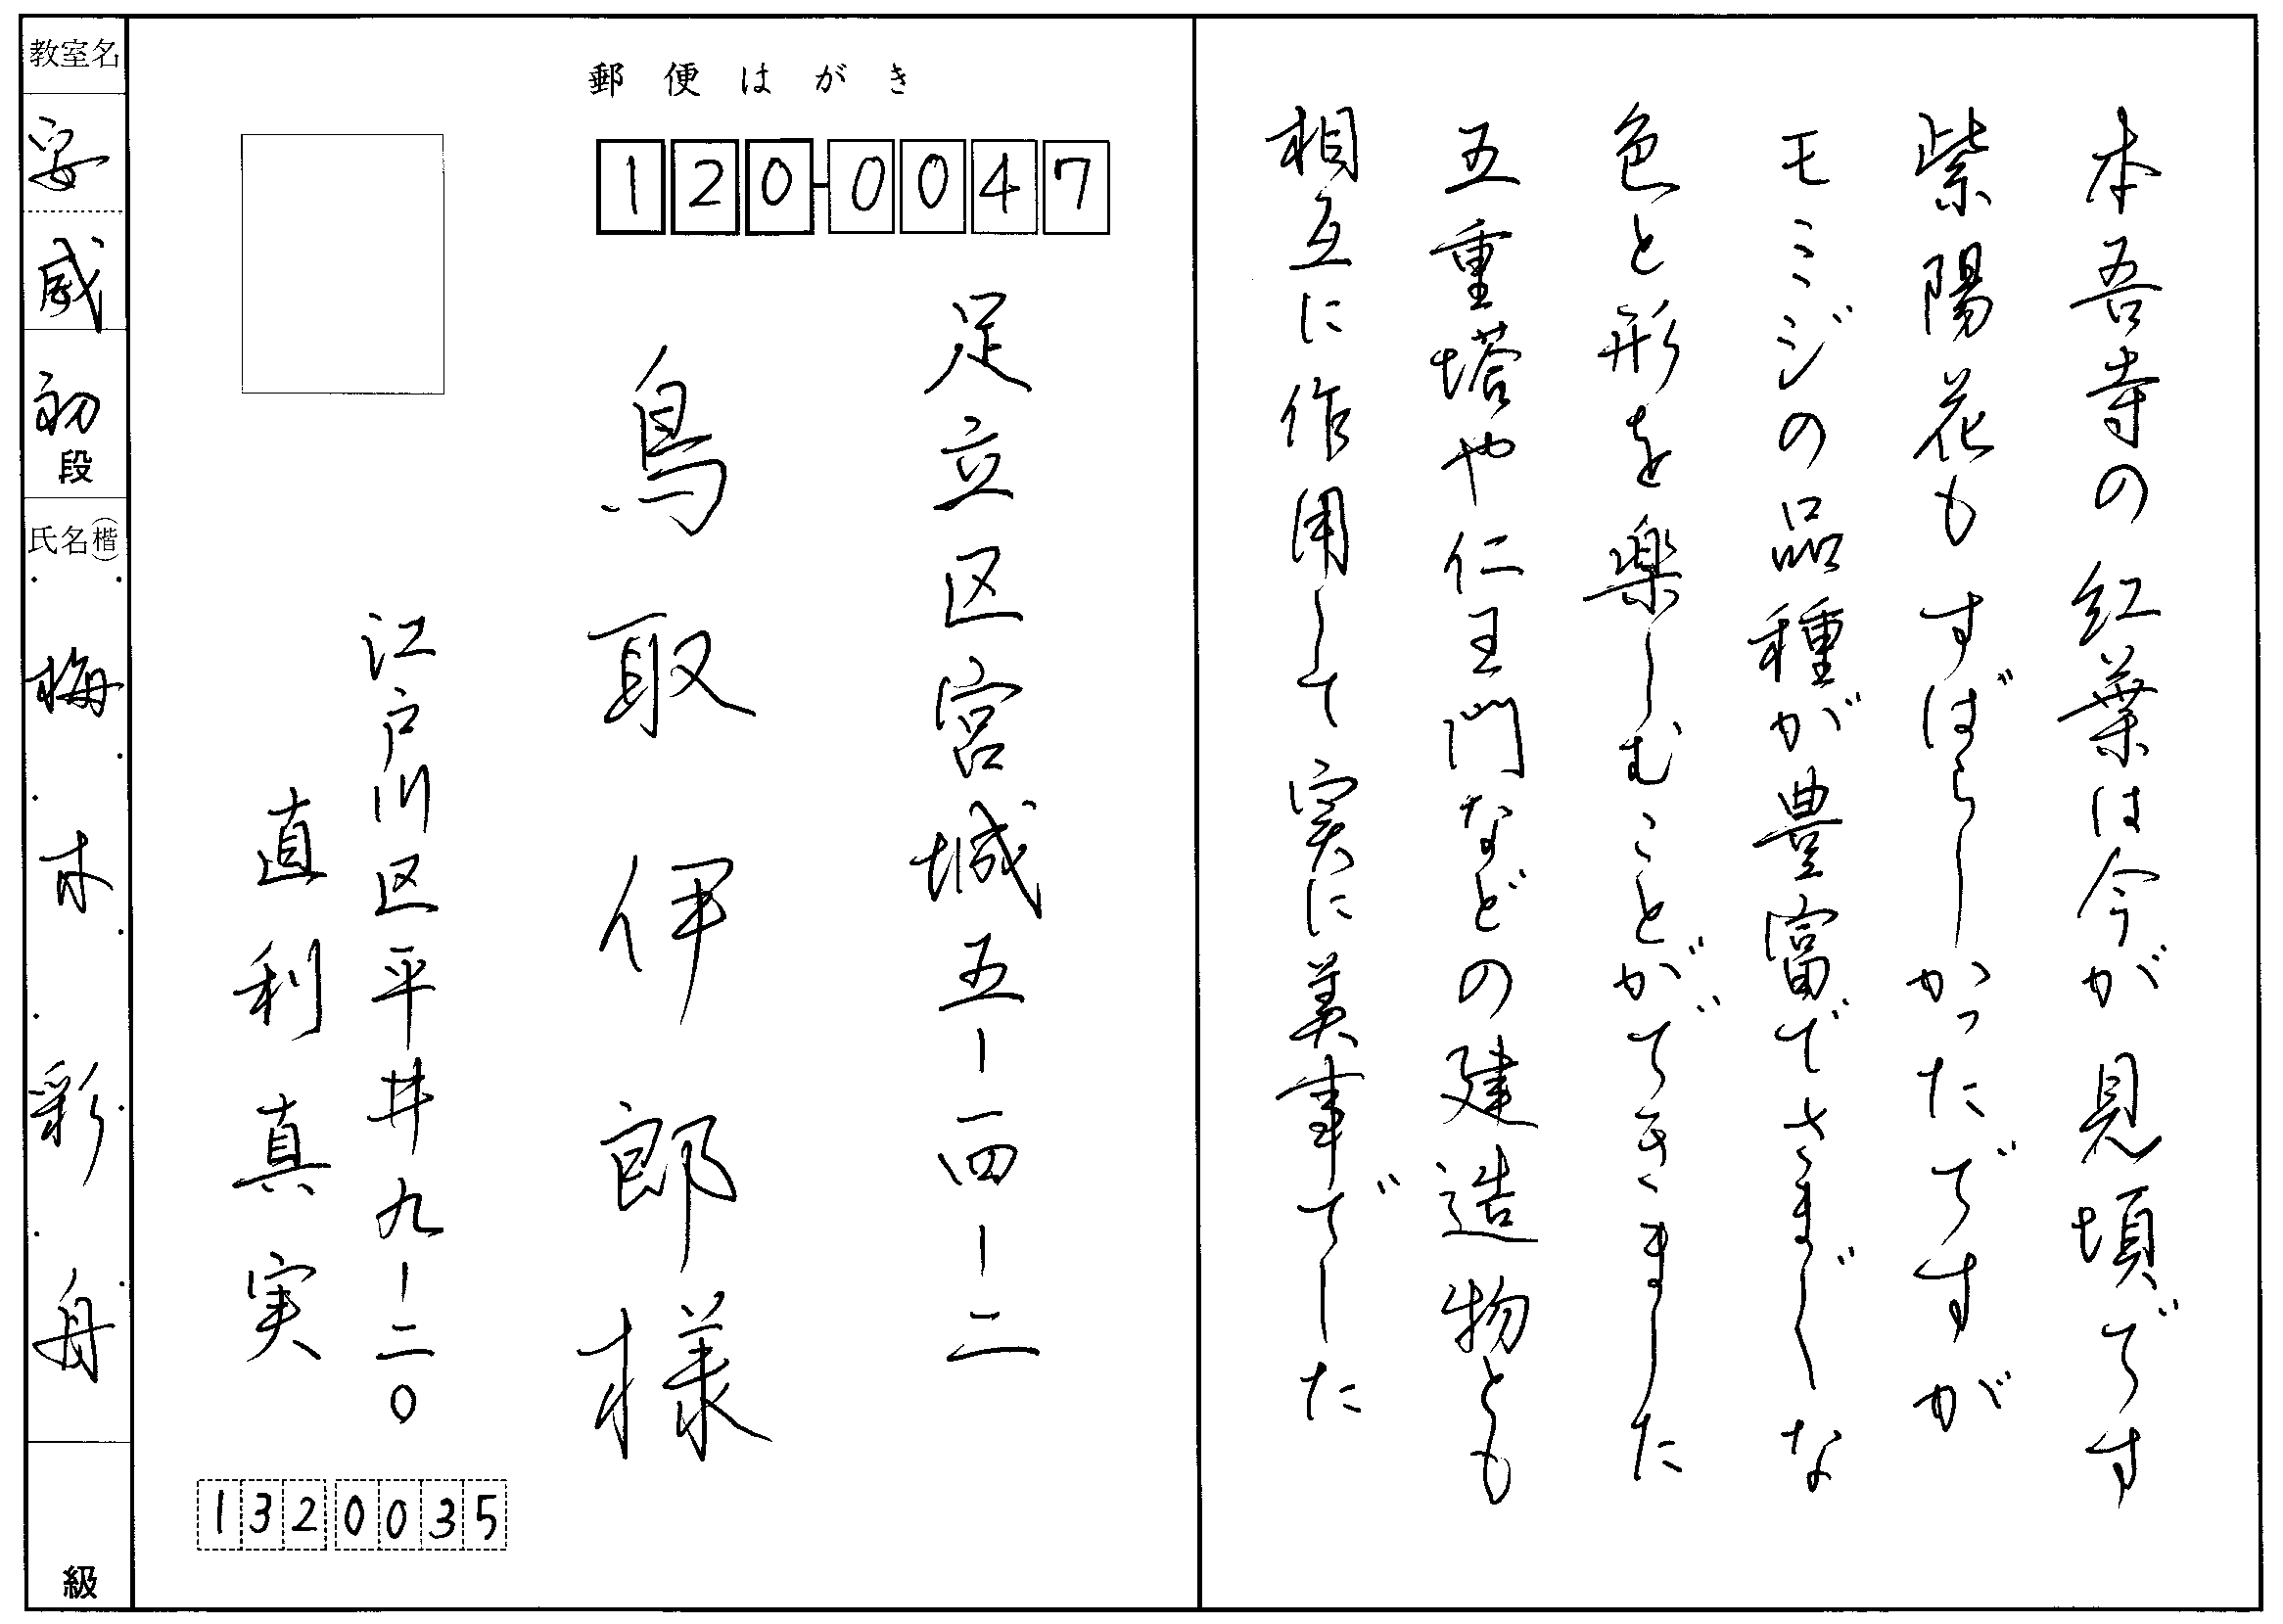 本吾寺の紅葉は今が見頃です
紫陽花もすばらしかったですが
モミジの品種が豊富でさまざまな
色と形を楽しむことができました
五重塔や仁王門などの建造物とも
相互に作用して実に美事でした
郵便はがき
120-0047
足立区宮城五-一四-二
鳥取伊郎様
江戸川区平井九-二〇
直利真実
1320035
教室名
安威
初段
氏名(楷)
梅木彩舟
級